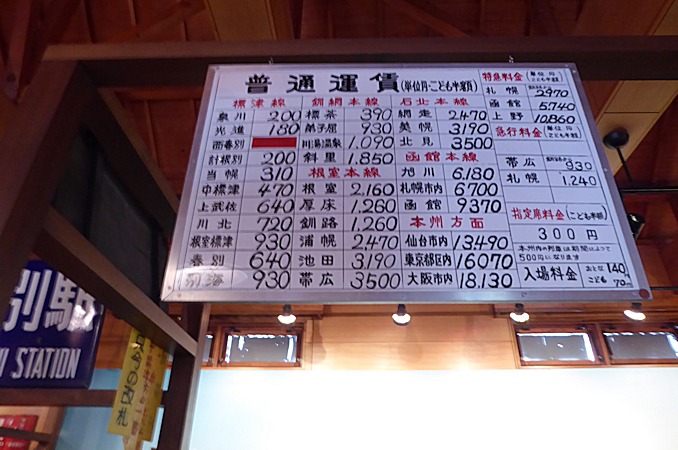 普通運賃(単位円・こども半額)
標津線
泉川 200
光進 180
西春別
計根別 200
当幌 310
中標津 470
上武佐 640
川北 720
根室標津 930
春別 640
別海 930
釧網本線
標茶 390
弟子屈 930
川湯温泉 1,090
斜里 1,850
根室本線
根室 2,160
厚床 1,260
釧路 1,260
浦幌 2470
池田 3190
帯広 3500
石北本線
網走 2470
美幌 3190
北見 3500
函館本線
旭川 6,180
札幌市内 6700
函館 9370
本州方面
仙台市内 13490
東京都区内 16070
大阪市内 18.130
特急料金(単位円こども半額)
札幌 2970
函館 5,740
上野 10,860
急行料金(単位円こども半額)
帯広 930
札幌 1,240
指定席料金(こども半額)
300円
本州内の列車は期間によって
500円になります
入場料金 おとな 140円
こども 70円
別駅
I STATION